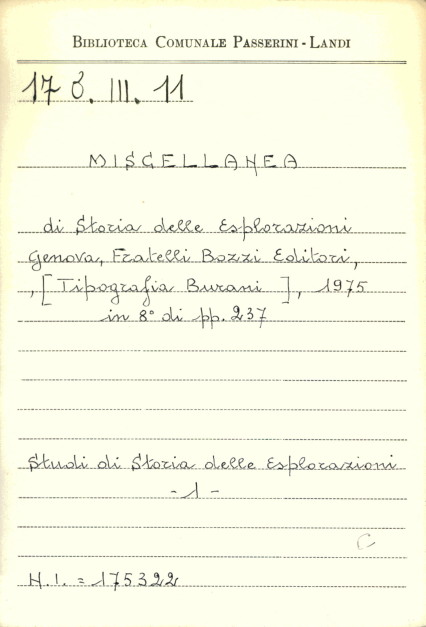 BIBLIOTECA COMUNALE PASSERINI - LANDI
17 8. III. 11
MISCELLANEA
di Storia delle Esplorazioni
Genova, Fratelli Bozzi Editori,
, [ Tipografia Burani ], 1975
in 8° di pp. 237
Studi di Storia delle Esplorazioni
- 1 -
C
N.I. = 175322